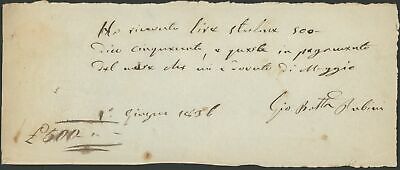 Ho ricevuto lire sterline 500
dico cinquecento, e queste in pagamento
del mese che mi è dovuto di Maggio
1º Giugno 1836
Gio Batta Rubini
£500